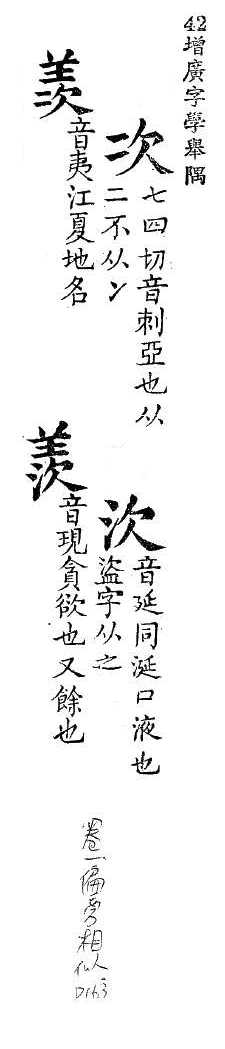 42增廣字學舉隅
次
七四切音刺亞也从
二不从冫
㳄
音延同涎口液也
盜字从之
羡
音夷江夏地名
羨
音現貪欲也又餘也
卷一偏旁相似